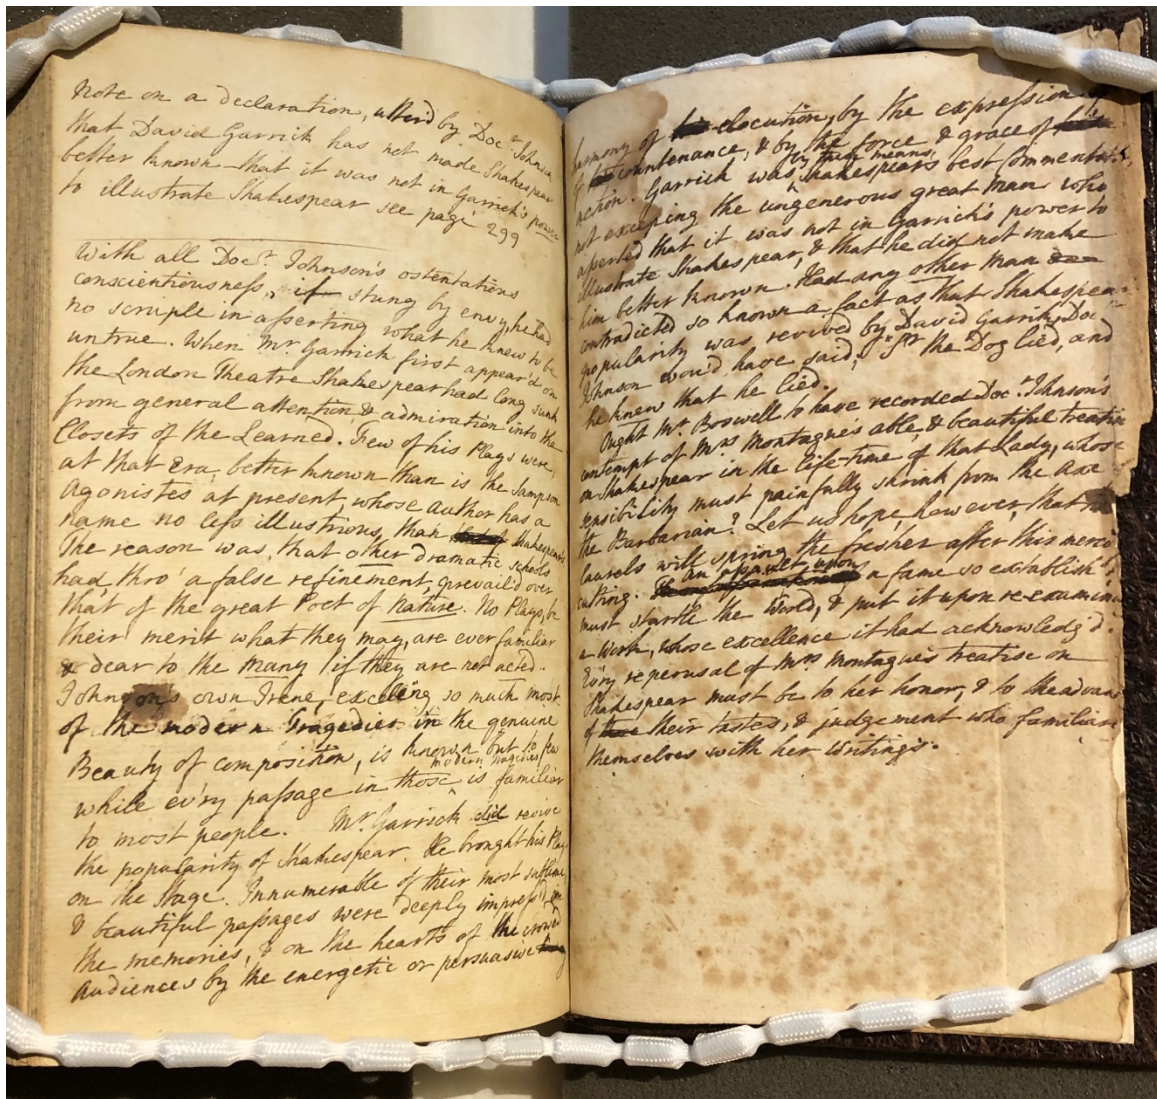 Note on a declaration, utterd by Docr. Johnson
that David Garrick has not made Shakespear
better known—that it was not in Garrick's power
to illustrate Shakespear see page 299
With all Docr. Johnson's ostentatious
conscientiousness, if stung by envy, he had
no scruple in asserting what he knew to be
untrue. When Mr. Garrick first appear'd on
the London Theatre Shakespear had long sunk
from general attention & admiration into the
Closets of the Learned. Few of his Plays were,
at that Era, better known than is the Sampson
Agonistes at present, whose author has a
name no less illustrious, than Shakespear's
The reason was, that other dramatic schools
had, thro' a false refinement, prevail'd over
that of the great Poet of Nature. No Plays, be
their merit what they may, are ever familiar
& dear to the many if they are not acted.
Johnson's own Irene, excelling so much most
of the modern Tragedies in the genuine
Beauty of composition, is known but to few
while ev'ry passage in those modern tragedies is familiar
to most people. Mr. Garrick did revive
the popularity of Shakespear. He brought his Plays
on the Stage. Innumerable of their most sublime
& beautiful passages were deeply impress'd on
the memories, & on the hearts of the crowded
audiences by the energetic or persuasive
harmony of his elocution, by the expression
of his countenance, & by the force & grace of his
action. Garrick was by these means, Shakespear's best Commentator,
not excepting the ungenerous great Man who
asserted that it was not in Garrick's power to
illustrate Shakespear, & that he did not make
him better known. Had any other Man
contradicted so known a fact as that Shakespear's
popularity was revived by David Garrick, Docr.
Johnson wou'd have said, "Sr. the Dog lied, and
he knew that he lied.
Ought Mr. Boswell to have recorded Docr. Johnson's
contempt of Mrs Montague's able & beautiful treatise
on Shakespear in the life-time of that Lady, whose
sensibility must painfully shrink from the axe
the Barbarian? Let us hope, however, that
laurels will spring the fresher after this merciless
cutting. an assault upon a fame so establish'd
must startle the World, & put it upon re-examining
a Work, whose excellence it had acknowledg'd.
Ev'ry reperusal of Mrs Montague's treatise on
Shakespear must be to her honor, & to the advantage
of their tastes, & judgement who familiarize
themselves with her Writings.